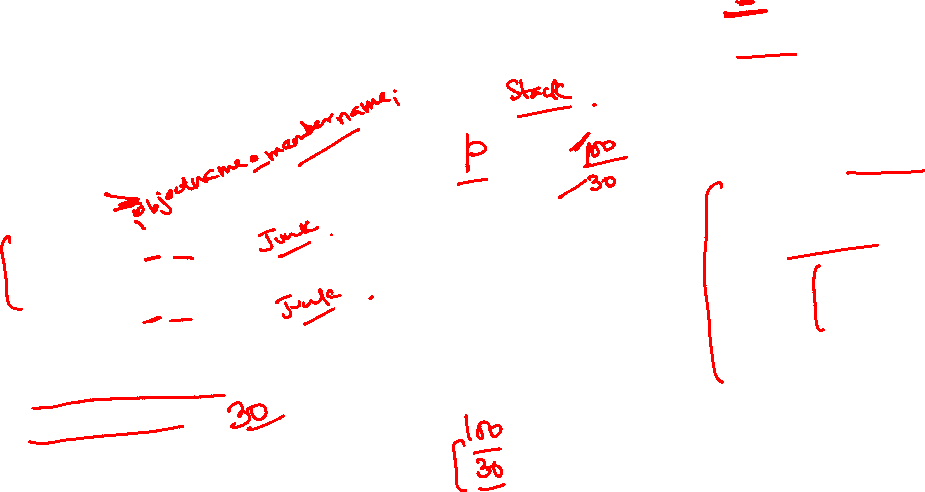 Stack.
objectname.membername;
p 100
30
Junk.
Junk.
30
100
30